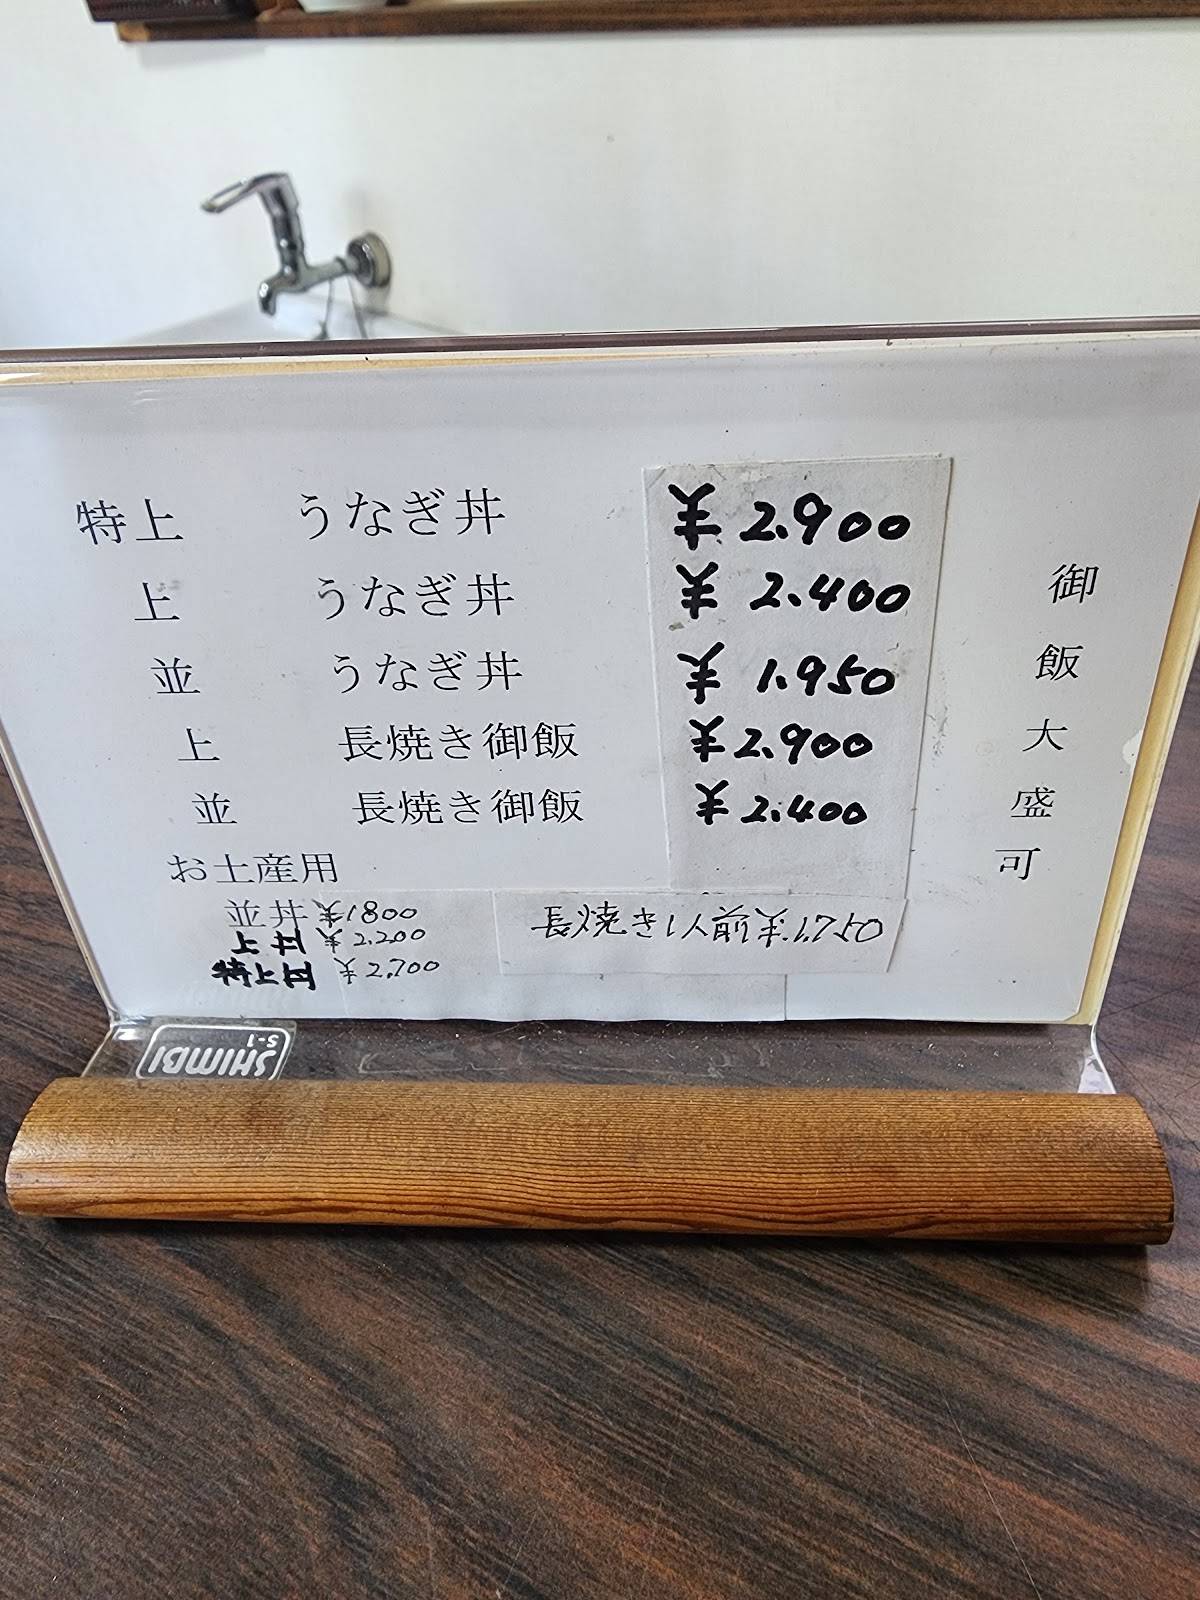 特上 うなぎ丼 ¥2.900
上 うなぎ丼 ¥2.400
並 うなぎ丼 ¥1.950
上 長焼き御飯 ¥2.900
並 長焼き御飯 ¥2.400
お土産用
並丼 ¥1800
上丼 ¥2.200
特上丼 ¥2.700
長焼き1人前
御飯大盛可
SHIMBI
S-1